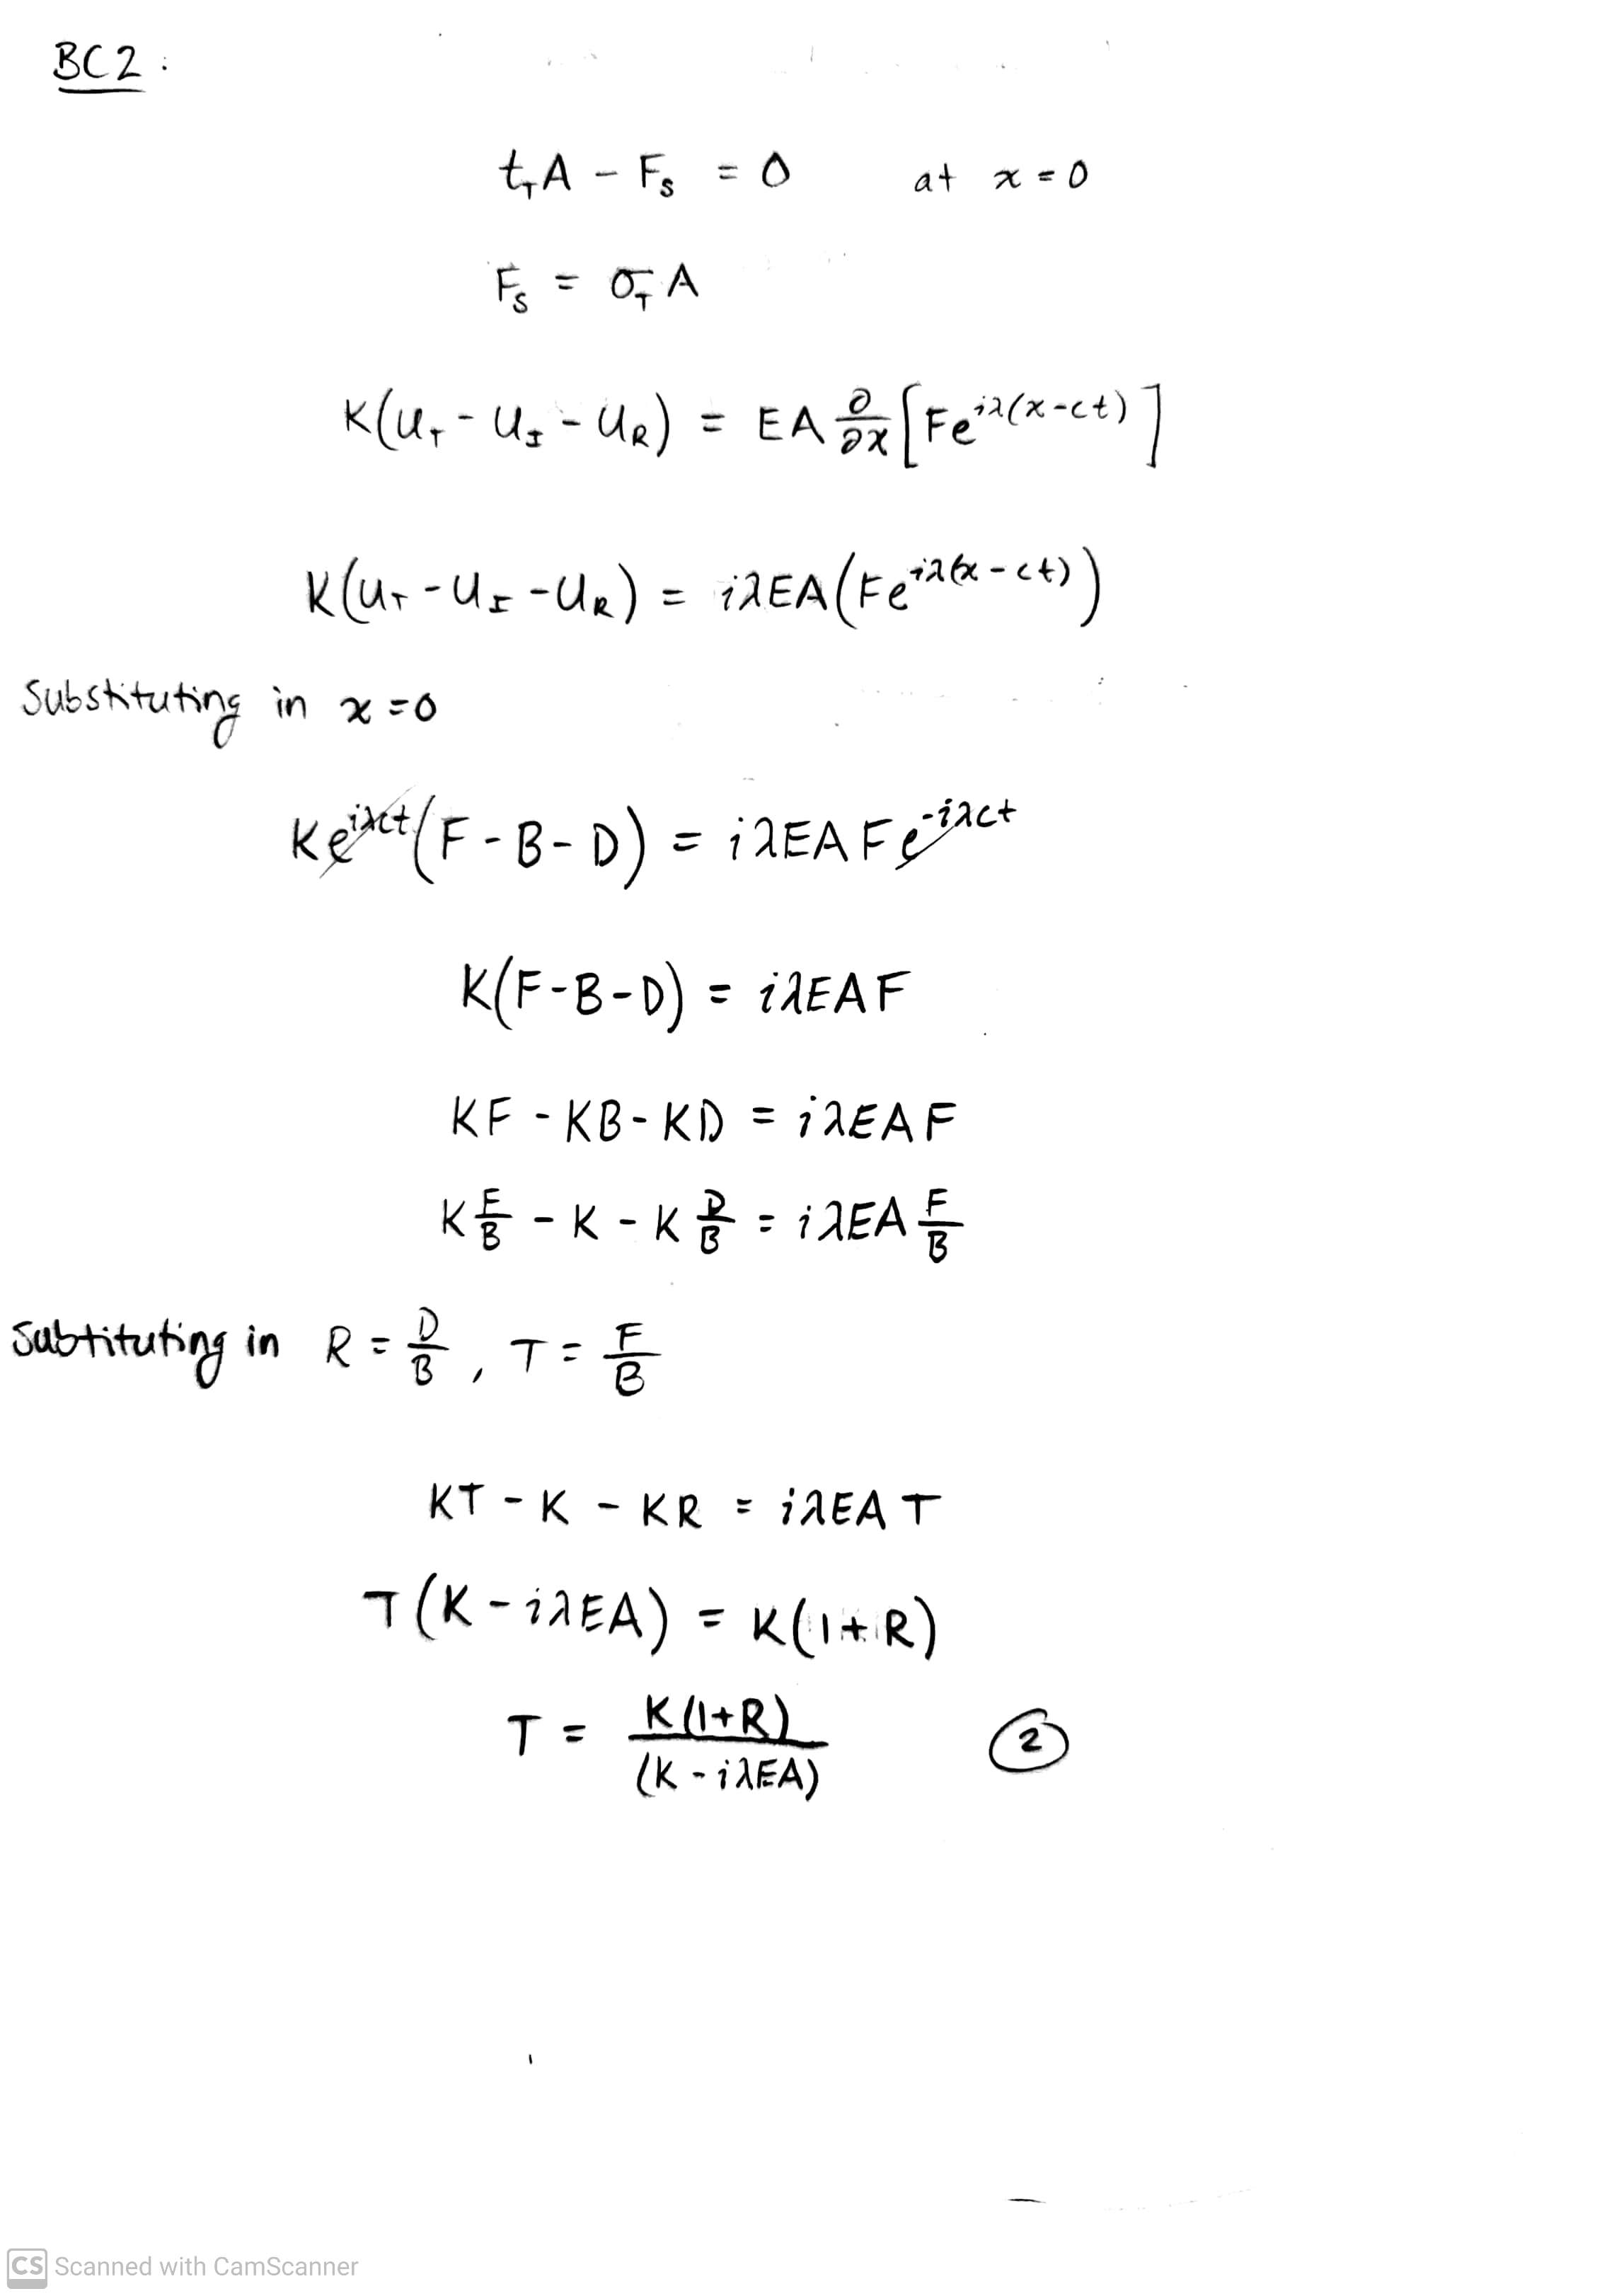 BC2:
t_T A - F_s = 0 at x = 0
F_s = σ_T A
K(U_T - U_I - U_R) = EA ∂/∂x [Fe^{iλ(x-ct)}]
K(U_T - U_I - U_R) = iλEA(Fe^{iλ(x-ct)})
Substituting in x=0
Ke^{iλct}(F - B - D) = iλEAFe^{-iλct}
K(F-B-D) = iλEAF
KF - KB - KD = iλEAF
K F/B - K - K D/B = iλEA F/B
Subtituting in R = D/B , T = F/B
KT - K - KR = iλEAT
T(K - iλEA) = K(1+R)
T = K(1+R)/(K - iλEA) ②
CS Scanned with CamScanner